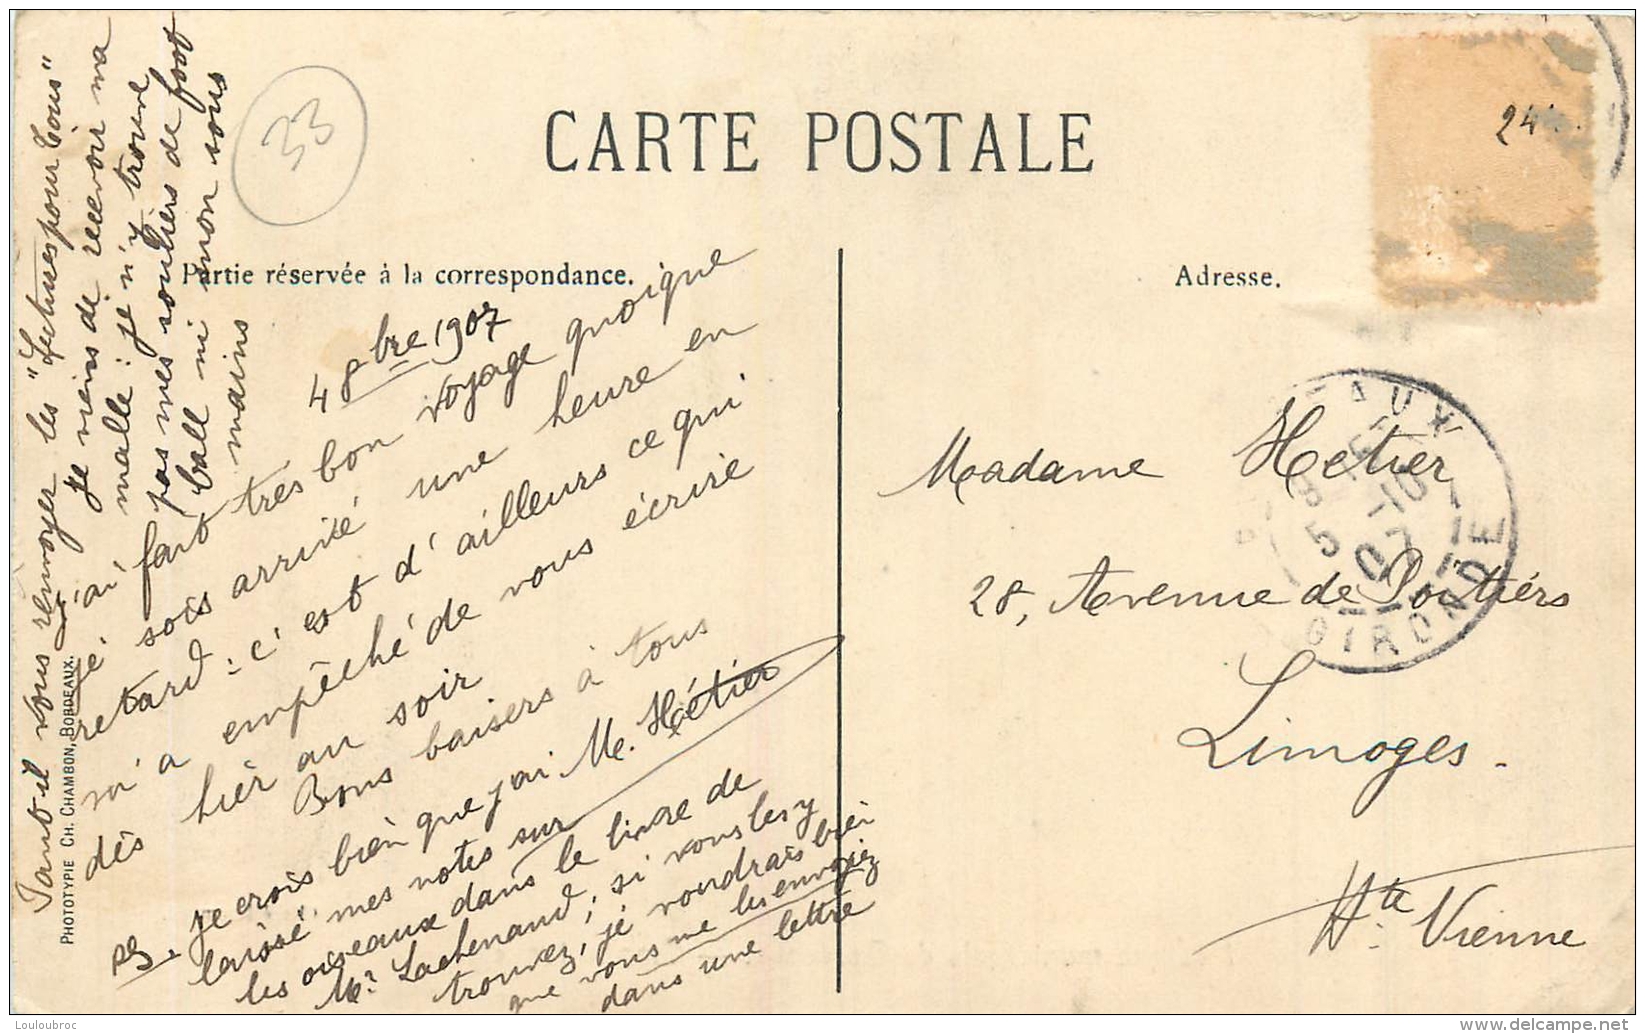 CARTE POSTALE
Partie réservée à la correspondance.
Adresse.
33
24
4 8bre 1907
J'ai fait très bon voyage quoique
je sois arrivé une heure en
retard : c'est d'ailleurs ce qui
m'a empêché de vous écrire
dès hier au soir
Bons baisers à tous
M. Hétier
PS. je crois bien que j'ai
laissé mes notes sur
les oiseaux dans le livre de
Mr Lachenaud ; si vous les y
trouvez, je voudrais bien
que vous me les envoyiez
dans une lettre
Faut-il vous renvoyer les "Lectures pour tous"
je viens de recevoir ma
malle : je n'y trouve
pas mes souliers de foot
ball ni mon sous
mains
Madame Hetier
28, Avenue de Poitiers
Limoges.
Hte Vienne
5 -10
07
GIRONDE
PHOTOTYPIE CH. CHAMBON, BORDEAUX.
Louloubroc
delcampe.net